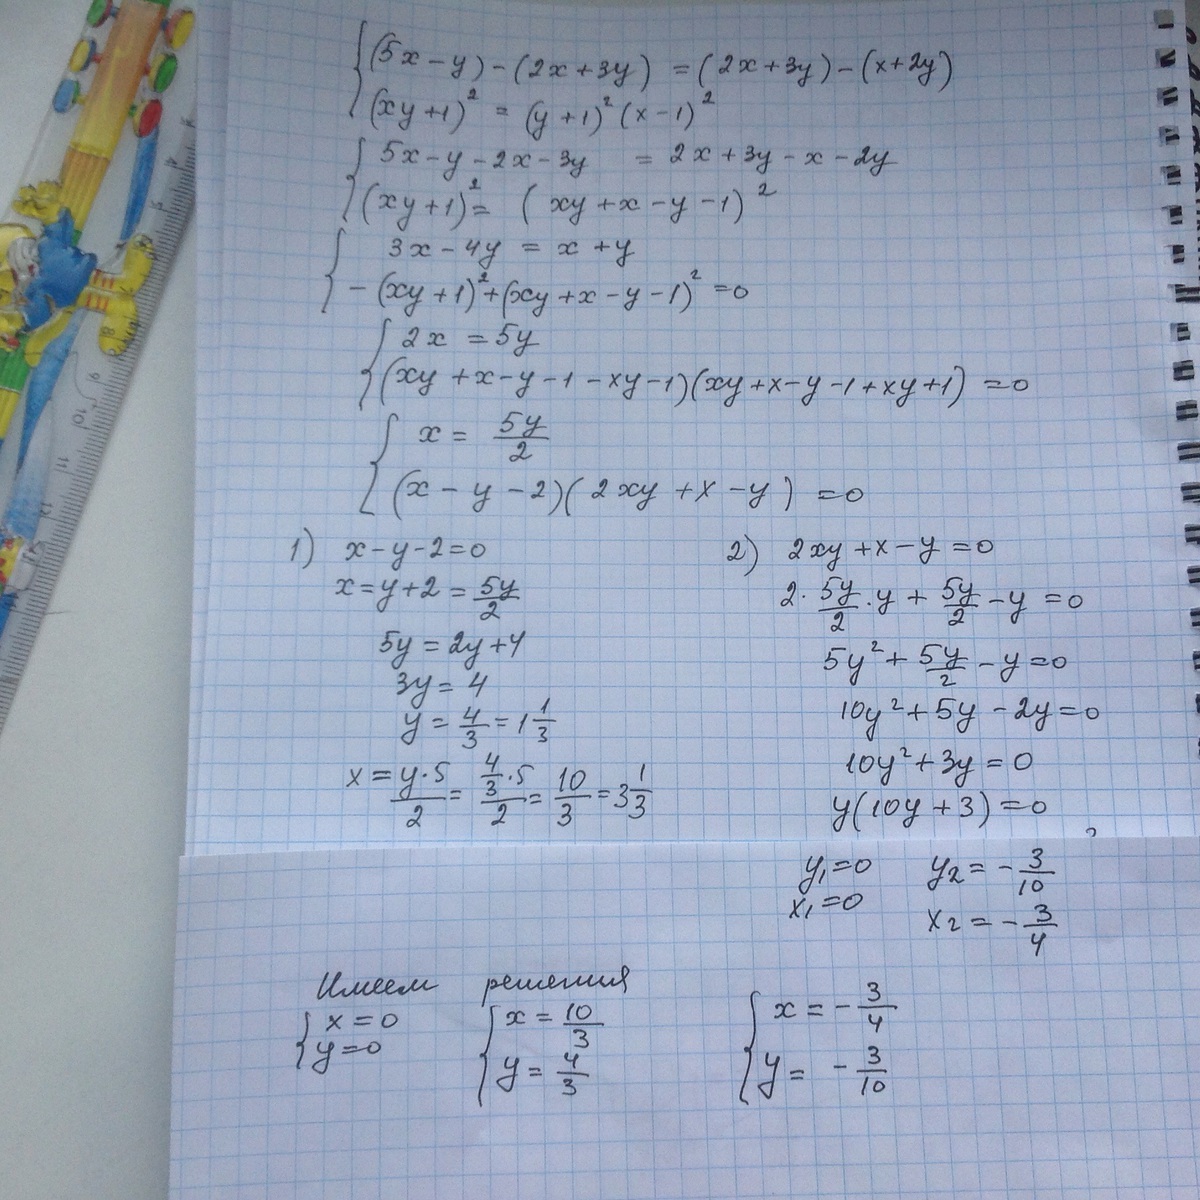 (5x-y)-(2x+3y) = (2x+3y)-(x+2y)
(xy+1)² = (y+1)²(x-1)²
5x-y-2x-3y = 2x+3y-x-2y
(xy+1)² = (xy+x-y-1)²
3x-4y = x+y
-(xy+1)²+(xy+x-y-1)²=0
2x = 5y
(xy+x-y-1-xy-1)(xy+x-y-1+xy+1) = 0
x = 5y/2
(x-y-2)(2xy+x-y) = 0
1) x-y-2=0
x=y+2=5y/2
5y=2y+4
3y=4
y=4/3=1 1/3
x=y·5/2=4/3·5/2=10/3=3 1/3
2) 2xy+x-y=0
2·5y/2·y+5y/2-y=0
5y²+5y/2-y=0
10y²+5y-2y=0
10y²+3y=0
y(10y+3)=0
y₁=0 y₂=-3/10
x₁=0 x₂=-3/4
Имеем решения
x=0 x=10/3 x=-3/4
y=0 y=4/3 y=-3/10